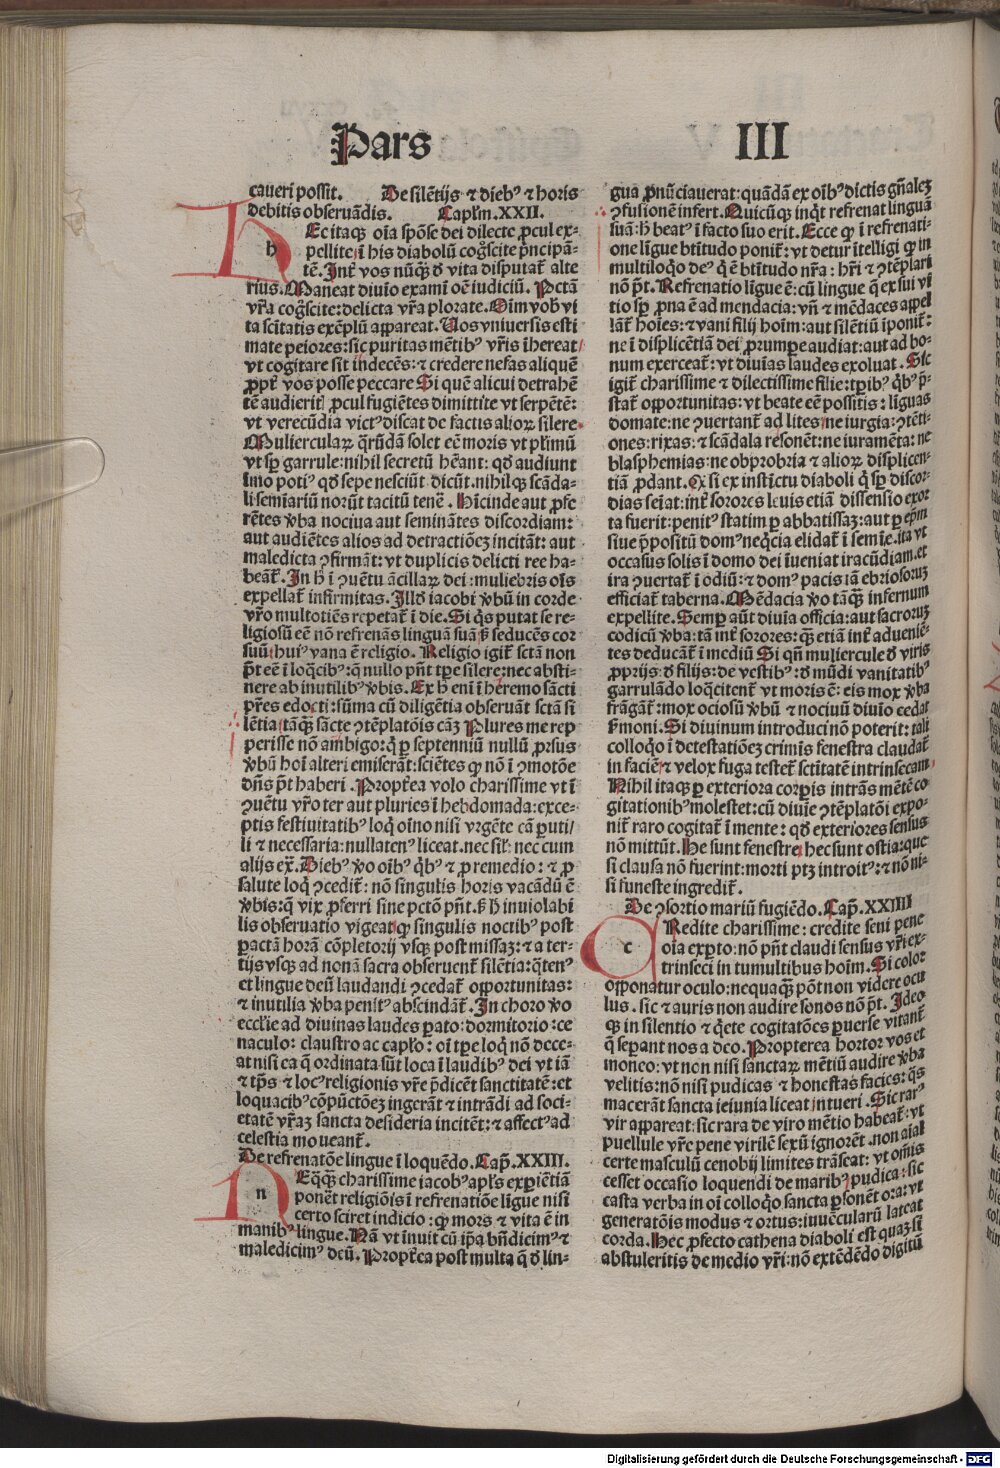 Pars III
caueri possit. De silētijs ⁊ dieb⁹ ⁊ horis
debitis obseruādis. Capl'm. XXII.
hEc itaqꝫ oīa spōse dei dilecte ꝓcul ex-
pellite, ī his diabolū cog̃scite p̃ncipā-
tē. Int̃ vos nūq̃ꝫ ð vita disputat̃ alte
rius. Maneat diuīo examī oē iudiciū. Pctā
vr̃a cog̃scite: delicta vr̃a plorate. Oīm vob̃ vi
ta sc̃itatis exēplū appareat. Uos vniuersis esti
mate peiores: sic puritas mētib⁹ vr̃is īhereat
vt cogitare sit indecēs: ⁊ credere nefas aliquē
ꝓpt̃ vos posse peccare Si quē alicui detrahē
tē audierit̃ ꝓcul fugiētes dimittite vt serpētē:
vt verecūdia vict⁹ discat de factis alioꝝ silere.
Muliercularꝝ q̃rūdā solet eē moris vt plr̃imū
vt sp̃ garrule: nihil secretū hēant: qð audiunt
Imo poti⁹ qð sepe nesciūt dicūt. nihilqꝫ scāda-
li semīariū norūt tacitū tenē. Hīcinde aut ꝓfe
rētes ꝟba nociua aut seminātes discordiam:
aut audiētes alios ad detractiōeꝫ incitāt: aut
maledicta ꝯfirmāt: vt duplicis delicti ree ha-
beāt̃. In h̃ ī ꝯuētu ācillaꝝ dei: muliebris oīs
expellat̃ infirmitas. Illð iacobi ꝟbū in corde
vr̃o multotiēs repetat̃ ī die. Si q̃s putat se re-
ligiosū eē nō refrenās linguā suā: sꝫ seducēs cor
suū, hui⁹ vana ē religio. Religio igit̃ sctā non
p̃t eē ī loq̃cib⁹: q̃ nullo pñt tp̃e silere: nec absti-
nere ab inutilib⁹ ꝟbis. Ex h̃ eni ī heremo sācti
pr̃es edocti: sūma cū diligētia obseruāt sctā si
lētia, tāqꝫ sācte ꝯtēplatōis cāꝫ Plures me rep
perisse nō ambigo: q̃ ꝑ septenniū nullū ꝓrsus
ꝟbū hoī alteri emiserāt: sciētes ꝙ nō ī ꝯmotōe
dñs p̃t haberi. Propt̃ea volo charissime vt ī
ꝯuētu vr̃o ter aut pluries ī hebdomada: exce-
ptis festiuitatib⁹ loq̃ oīno nisi vrgēte cā ꝑuti/
li ⁊ necessaria: nullaten⁹ liceat. nec sil̃: nec cum
alijs ex̃. Dieb⁹ ꝟo oīb⁹ q̃b⁹ ⁊ ꝓ remedio: ⁊ ꝓ
salute loq̃ ꝯcedit̃: nō singulis horis vacādū ē
ꝟbis: q̃ vix ꝓferri sine pctō pñt. sꝫ h̃ inuiolabi
lis obseruatio vigeat, ꝙ singulis noctib⁹ post
ꝑactā horā cōpletorij vsqꝫ post missaꝫ: ⁊ a ter-
tijs vsqꝫ ad nonā sacra obseruent̃ silētia: q̃ten⁹
et lingue deū laudandi ꝯcedat̃ opportunitas:
⁊ inutilia ꝟba penit⁹ abscindāt̃. In choro ꝟo
ecclīe ad diuinas laudes ꝑato: dormitorio: ce
naculo: claustro ac capl'o: oī tp̃e loq̃ nō dece-
at nisi ea q̃ ordinata sūt loca ī laudib⁹ dei vt iā
⁊ tp̃s ⁊ loc⁹ religionis vr̃e p̃dicēt sanctitatē: et
loquacib⁹ cōpūctōeꝫ ingerāt ⁊ intrādi ad soci-
etatē vr̃aꝫ sancta desideria incitēt: ⁊ affect⁹ ad
celestia moueant̃.
De refrenatōe lingue ī loquēdo. Cap̃. XXIII.
nEq̃qꝫ charissime iacob⁹ apl's exꝑiētiā
ponēt religiōis ī refrenatiōe līgue nisi
certo sciret indicio: ꝙ mors ⁊ vita ē in
manib⁹ lingue. Nā vt īnuit cū ip̃a bñdicim⁹ ⁊
maledicim⁹ deū. Propt̃ea post multa q̃ ð lin-
gua ꝓnūciauerat: quādā ex oīb⁹ dictis gñaleꝫ
ꝯfusionē infert. Quicūqꝫ inq̃t refrenat linguā
suā: h̃ beat⁹ ī facto suo erit. Ecce ꝙ ī refrenati-
one līgue btītudo ponit̃: vt detur ītelligi ꝙ in
multiloq̃o de⁹ q̃ ē btītudo nr̃a: hr̃i ⁊ ꝯtēplari
nō p̃t. Refrenatio līgue ē: cū lingue q̃ ex sui vi
tio sp̃ ꝓna ē ad mendacia: vñ ⁊ mēdaces appel
lāt̃ hoīes: ⁊ vani filij hoīm: aut silētiū īponit̃:
ne ī displicētiā dei ꝓrumpere audiat: aut ad bo-
num exerceat̃: vt diuīas laudes exoluat. Sic
igit̃ charissime ⁊ dilectissime filie: tp̃ib⁹ q̃b⁹ p̃-
stat̃ opportunitas: vt beate eē possitis: līguas
domate: ne ꝯuertant̃ ad lites, ne iurgia: ꝯtēti-
ones: rixas: ⁊ scādala resonēt: ne iuramēta: ne
blasphemias: ne obprobria ⁊ alioꝝ displicen-
tiā ꝓdant. Q̃ si ex instīctu diaboli q̃ sp̃ discor-
dias seīat: int̃ sorores leuis etiā dissensio exor
ta fuerit: penit⁹ statim ꝑ abbatissaꝫ: aut ꝑ ep̃m
siue p̃positū dom⁹ neq̃cia elidat̃ ī semīe. ita vt
occasus solis ī domo dei īueniat iracūdiam. et
ira ꝯuertat̃ ī odiū: ⁊ dom⁹ pacis iā ebriosoruꝫ
efficiat̃ taberna. Mēdacia ꝟo tāqꝫ infernum
expellite. Semꝑ aūt diuīa officia: aut sacroruꝫ
codicū ꝟba: tā int̃ sorores: qꝫ etiā int̃ aduenīe-
tes deducāt̃ ī mediū Si qñ muliercule ð viris
ꝓprijs: ð filijs: de vestib⁹: ð mūdi vanitatib⁹
garrulādo loq̃citent̃ vt moris ē: eis mox ꝟba
frāgāt̃: mox ociosū ꝟbū ⁊ nociuū diuīo cedat
ẜmoni. Si diuinum introduci nō poterit: tali
colloq̃o ī detestatiōeꝫ crimīs fenestra claudat̃
in faciē, ⁊ velox fuga testet̃ sctītatē intrinsecam
Nihil itaqꝫ ꝑ exteriora corꝑis intrās mētē co
gitationib⁹ molestet: cū diuīe ꝯtēplatōi expo-
nit̃ raro cogitat̃ ī mente: qð exteriores sensus
nō mittūt. He sunt fenestre, hec sunt ostia: que
si clausa nō fuerint: morti ptꝫ introit⁹: ⁊ nō ni-
si funeste ingredit̃.
De ꝯsortio mariū fugiēdo. Cap̃. XXIIII
cRedite charissime: credite seni pene
oīa exꝑto: nō pñt claudi sensus vr̃i ex-
trinseci in tumultibus hoīm. Si color
opponatur oculo: nequaqꝫ pōt non videre ocu
lus. sic ⁊ auris non audire sonos nō p̃t. Ideo
qꝫ in silentio ⁊ q̃ete cogitatōes ꝑuerse vitant̃
q̃ seꝑant nos a deo. Propterea hortor vos et
moneo: vt non nisi sanctaꝝ mētiū audire ꝟba
velitis: nō nisi pudicas ⁊ honestas facies: q̃s
macerāt sancta ieiunia liceat, intueri. Sic rar⁹
vir appareat: sic rara de viro mētio habeat̃: vt
puellule vr̃e pene virilē sexū ignorēt. non aīal
certe masculū cenobij limites trāseat: vt om̃is
cesset occasio loquendi de marib⁹, pudica: sic
casta verba in oī colloq̃o sancta ꝑsonēt ora: vt
generatōis modus ⁊ ortus: iuuēcularū lateat
corda. Hec ꝓfecto cathena diaboli est quaꝫ si
abstuleritis de medio vr̃i: nō extēdēdo digitū
Digitalisierung gefördert durch die Deutsche Forschungsgemeinschaft - DFG